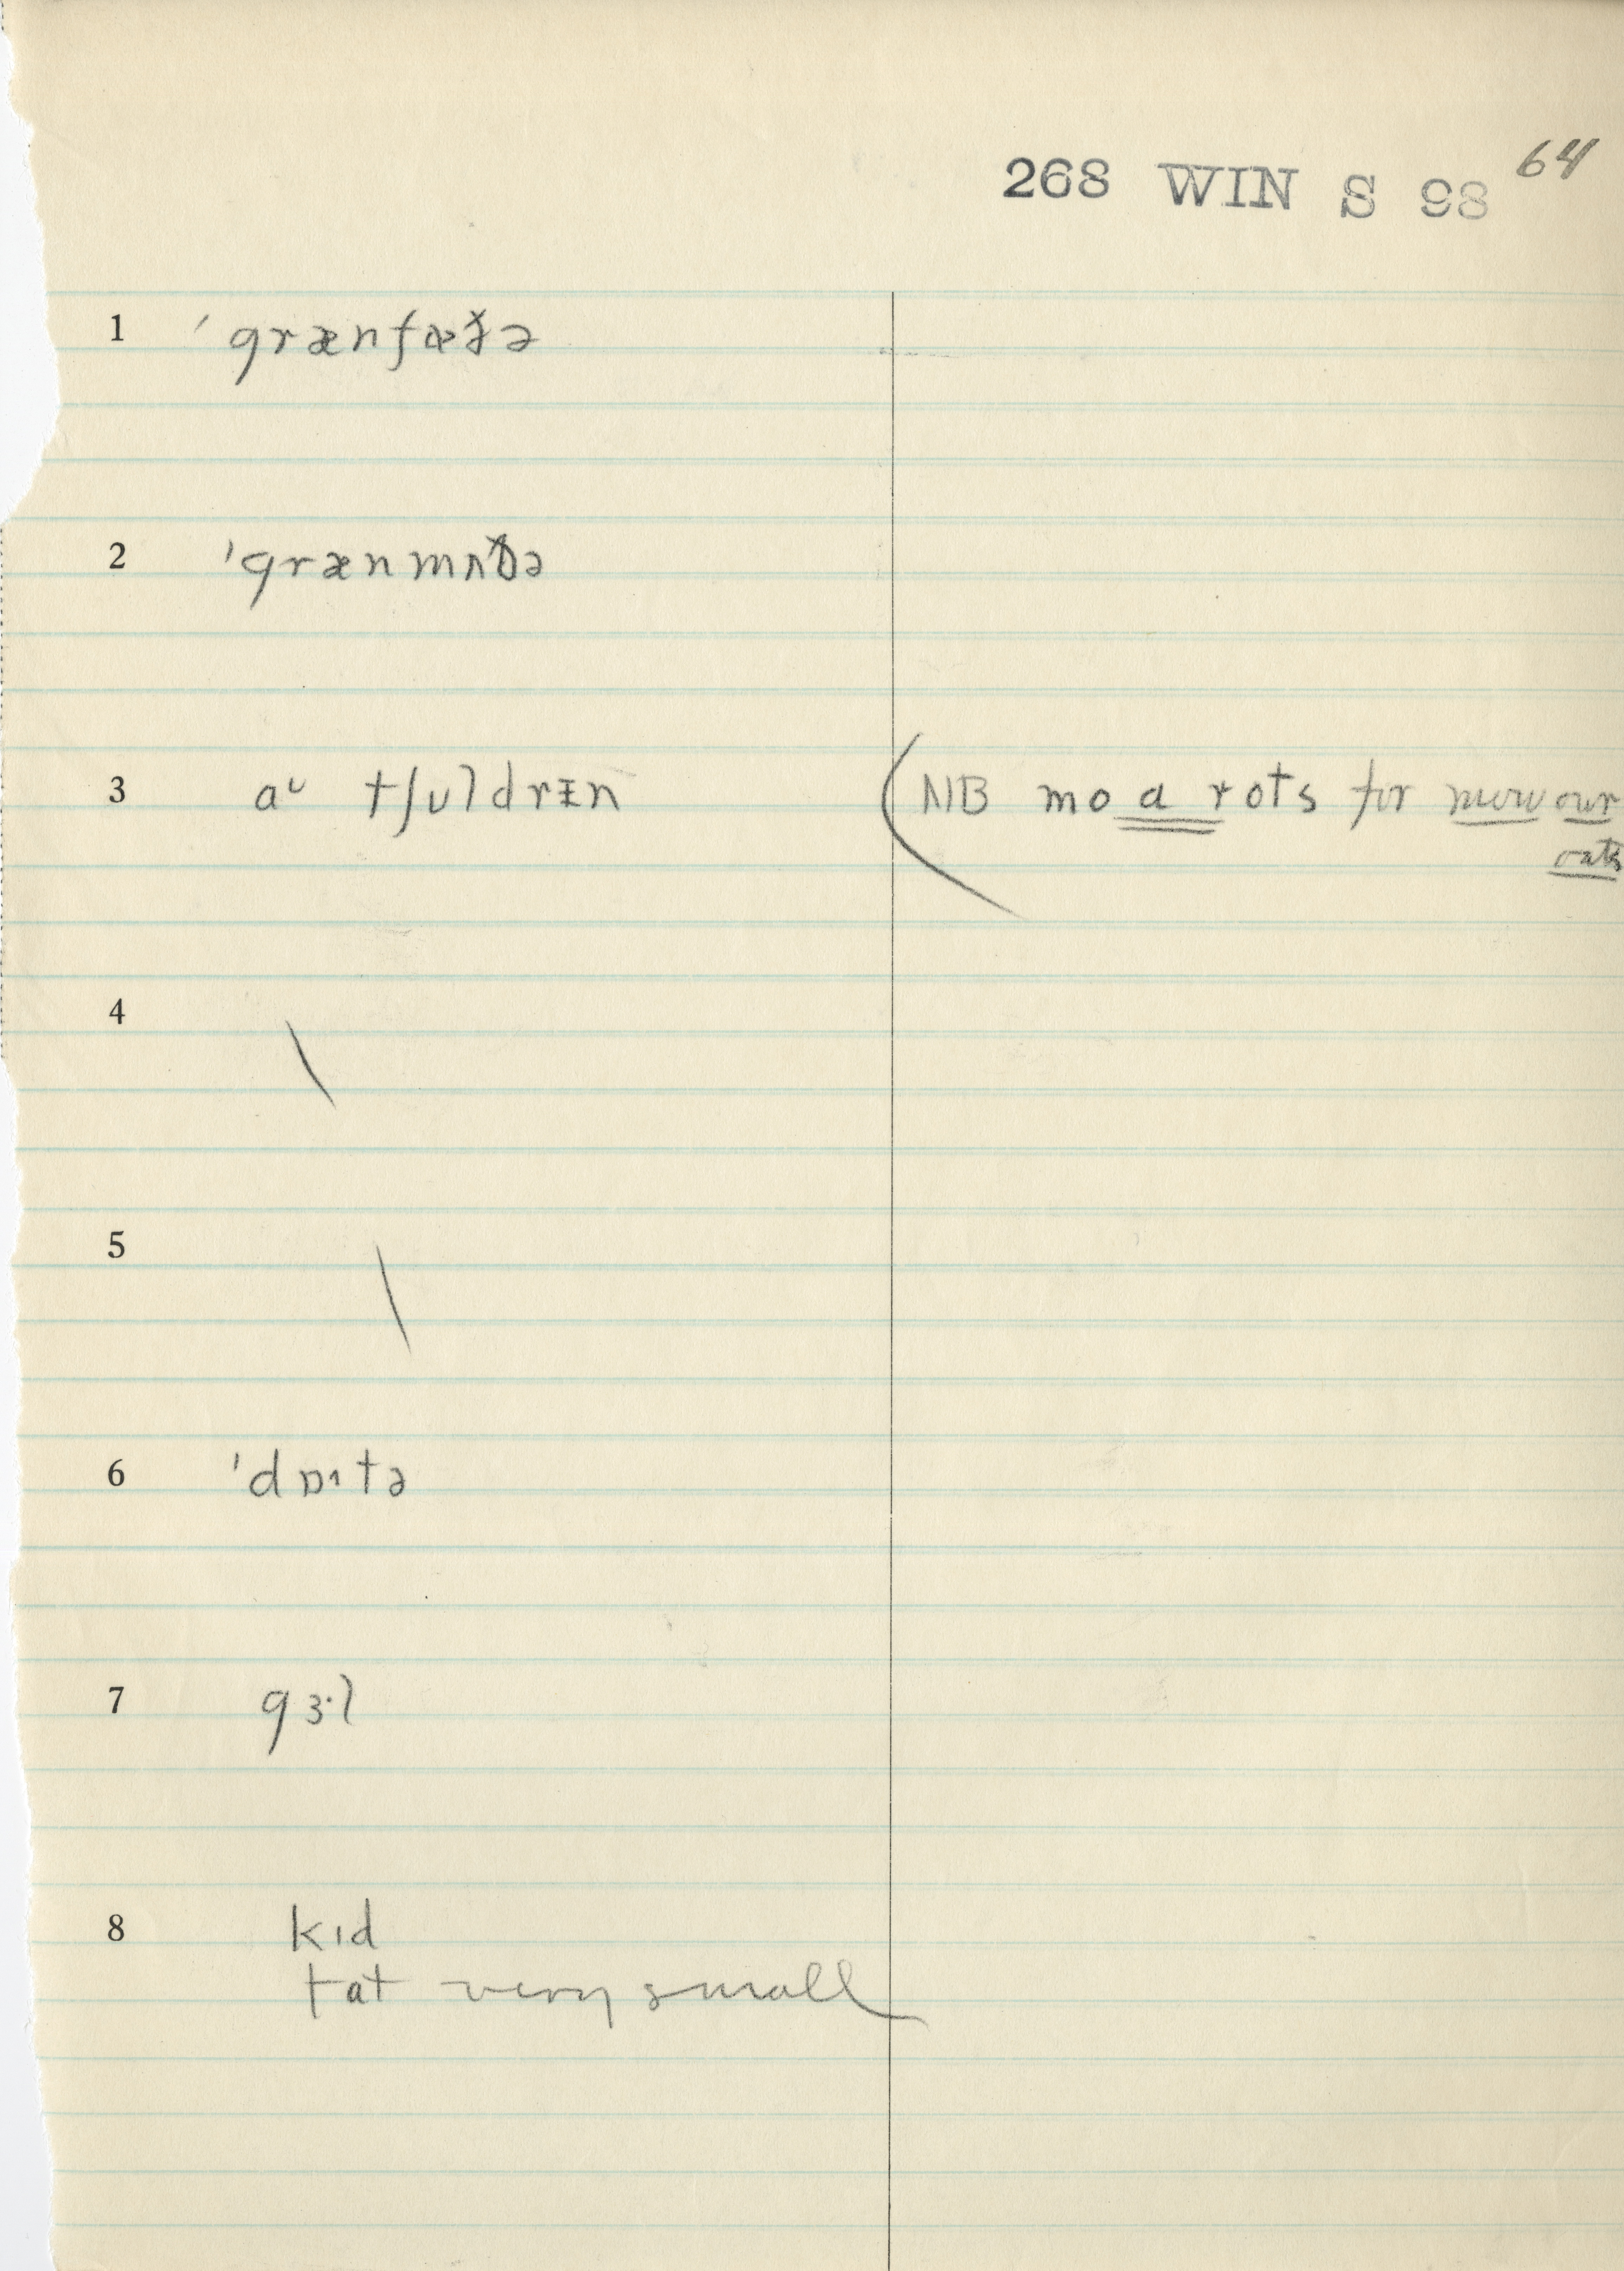 268 WIN S 98 64
1 ˈgrænfæðə
2 ˈgrænmʌðə
3 aᴜ tʃʊldrɪ̵n (NB mo a rots for mow our
oats
4 \
5 \
6 ˈdɒɪtə
7 gɜ·l
8 kɪd
tat very small